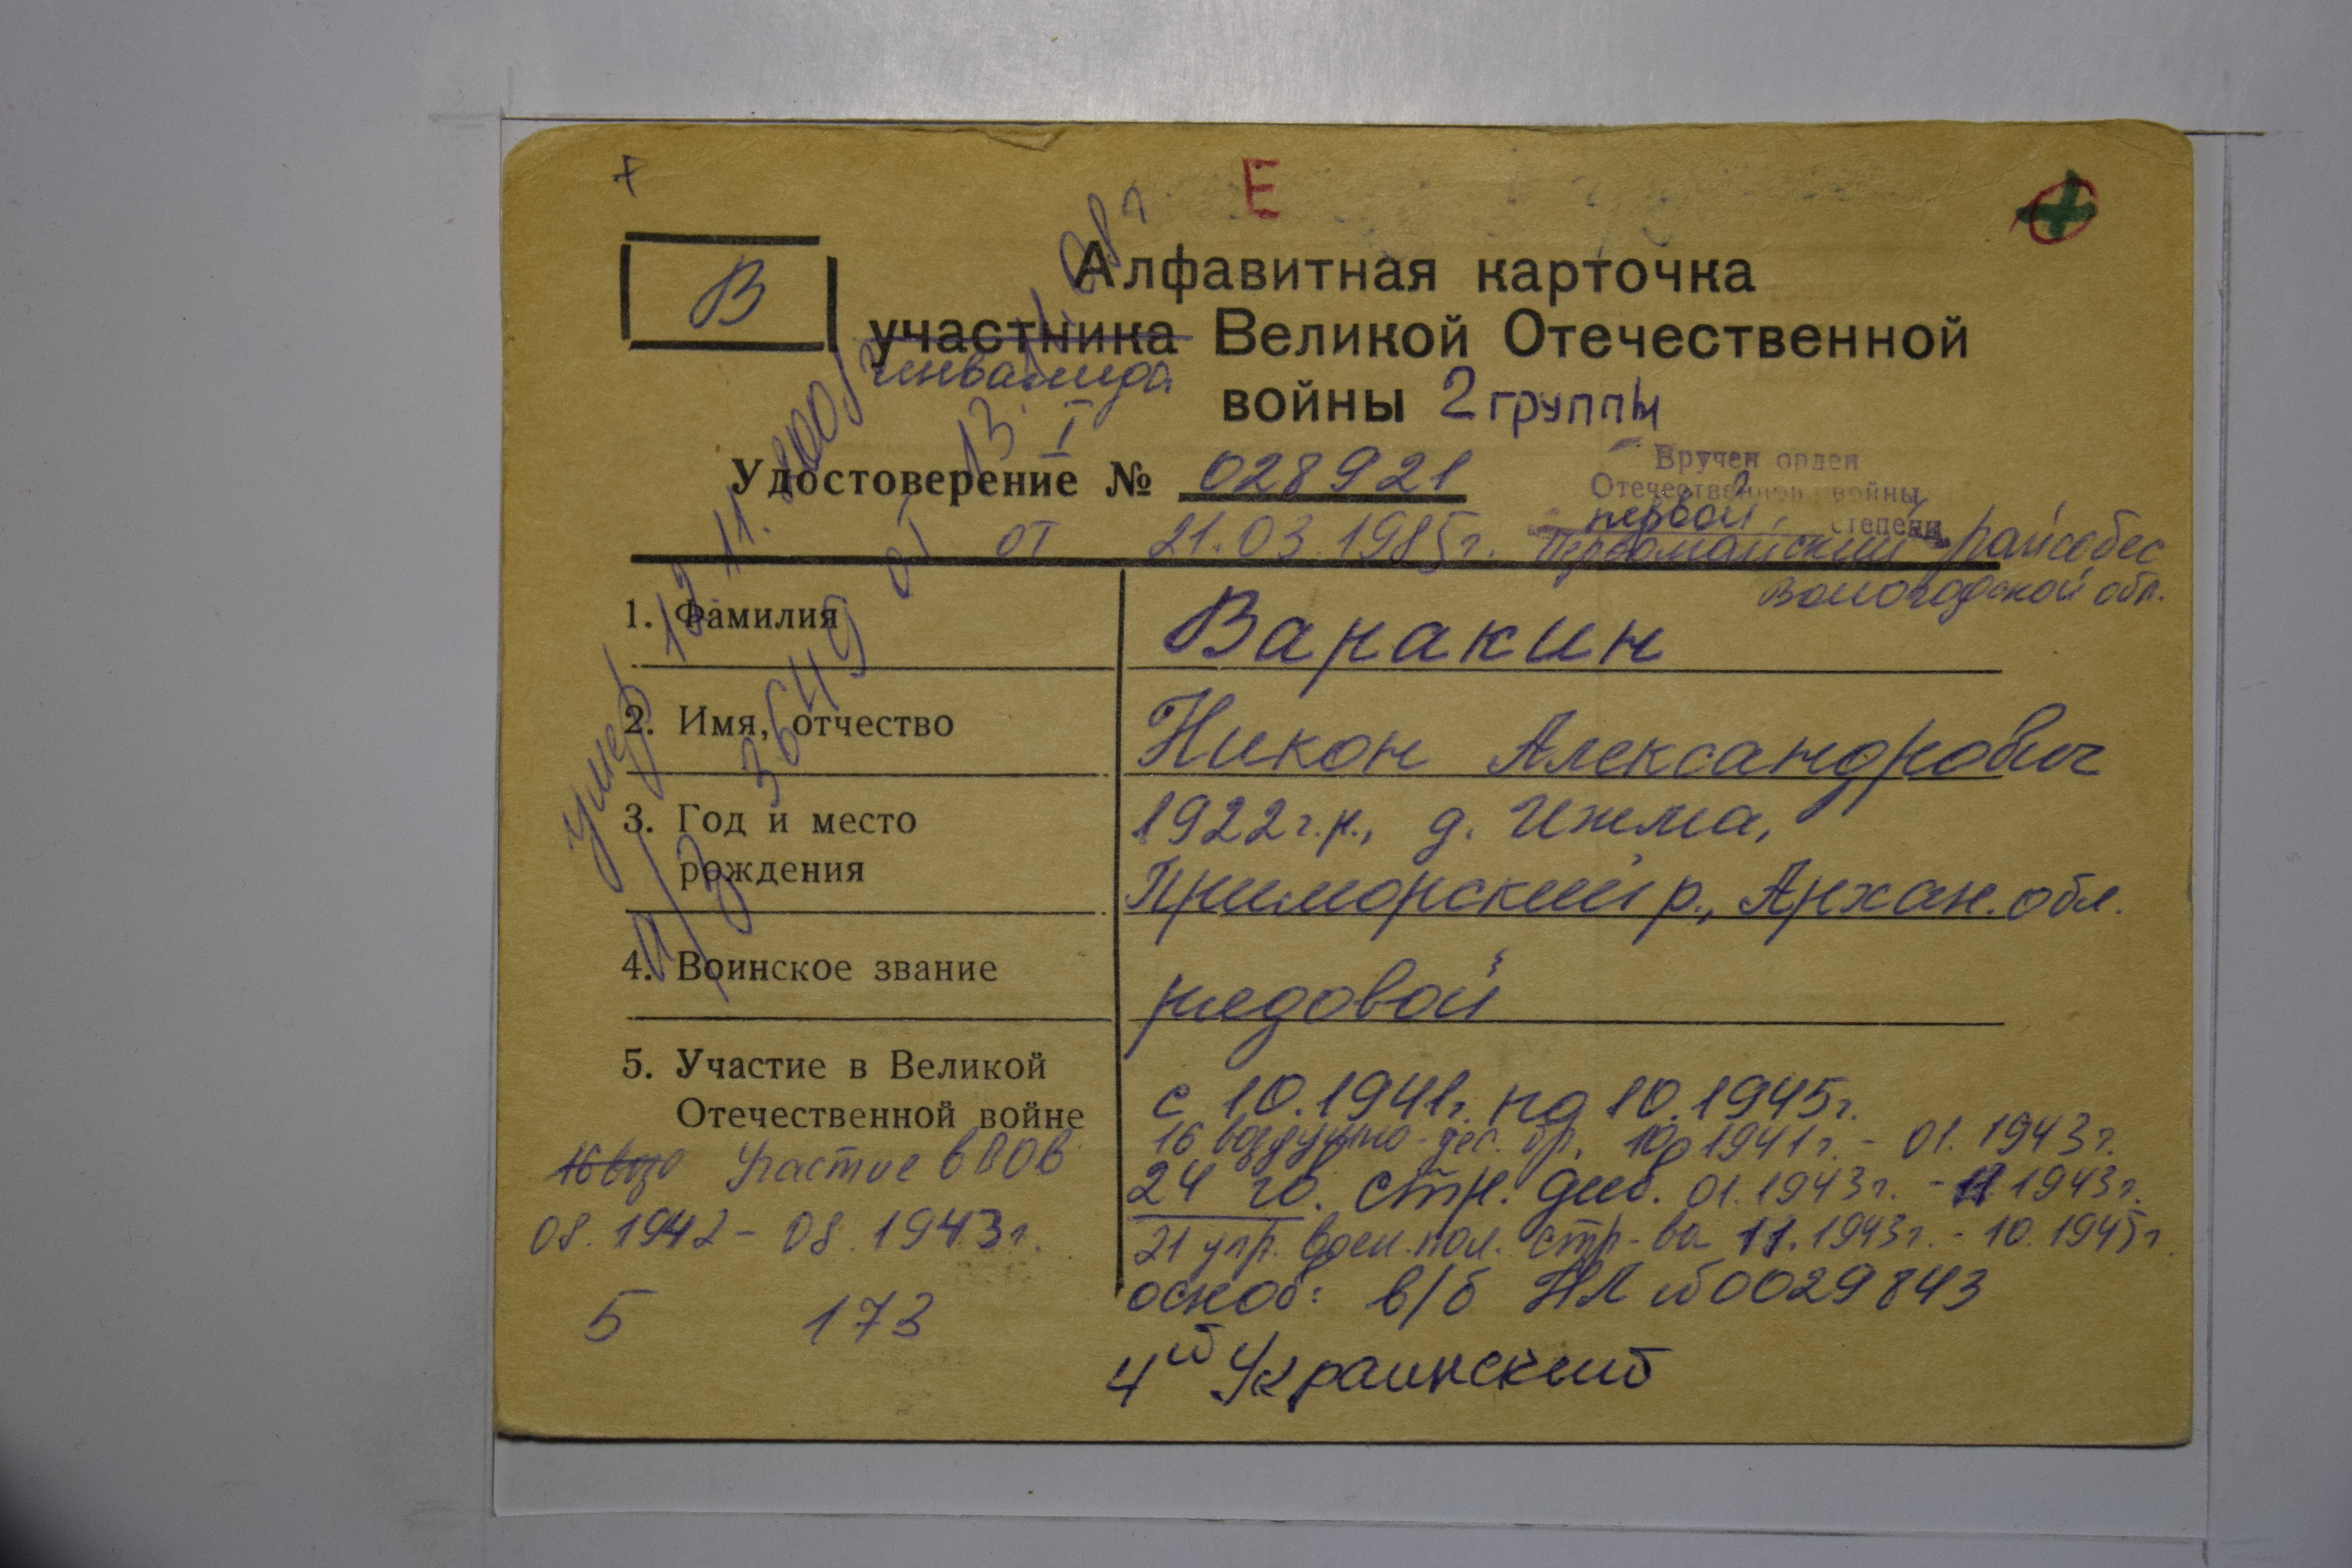 Е
В
Алфавитная карточка
участника Великой Отечественной
инвалида
войны 2 группы
I
Удостоверение № 028921
от 21.03.1985г.
Вручен орден
Отечественной войны
первой степени
Первомайский райсобес
Вологодской обл.
1. Фамилия
Варакин
2. Имя, отчество
Никон Александрович
3. Год и место
рождения
1922 г.р., д. Ижма,
Приморский р., Архан. обл.
4. Воинское звание
рядовой
5. Участие в Великой
Отечественной войне
с 10.1941г. по 10.1945г.
16 воздушно-дес. бр. 10 1941г. - 01.1943г.
24 гв. стр. див. 01.1943г. - 11 1943г.
21 упр. воен. пол. стр-ва 11.1943г. - 10.1945г.
основ: в/б НЛ №0029843
4й Украинский
16 возд Участие в ВОВ
08.1942 - 08.1943г.
5 173
умер 12.11.2000г
а/з 3649 от 13.